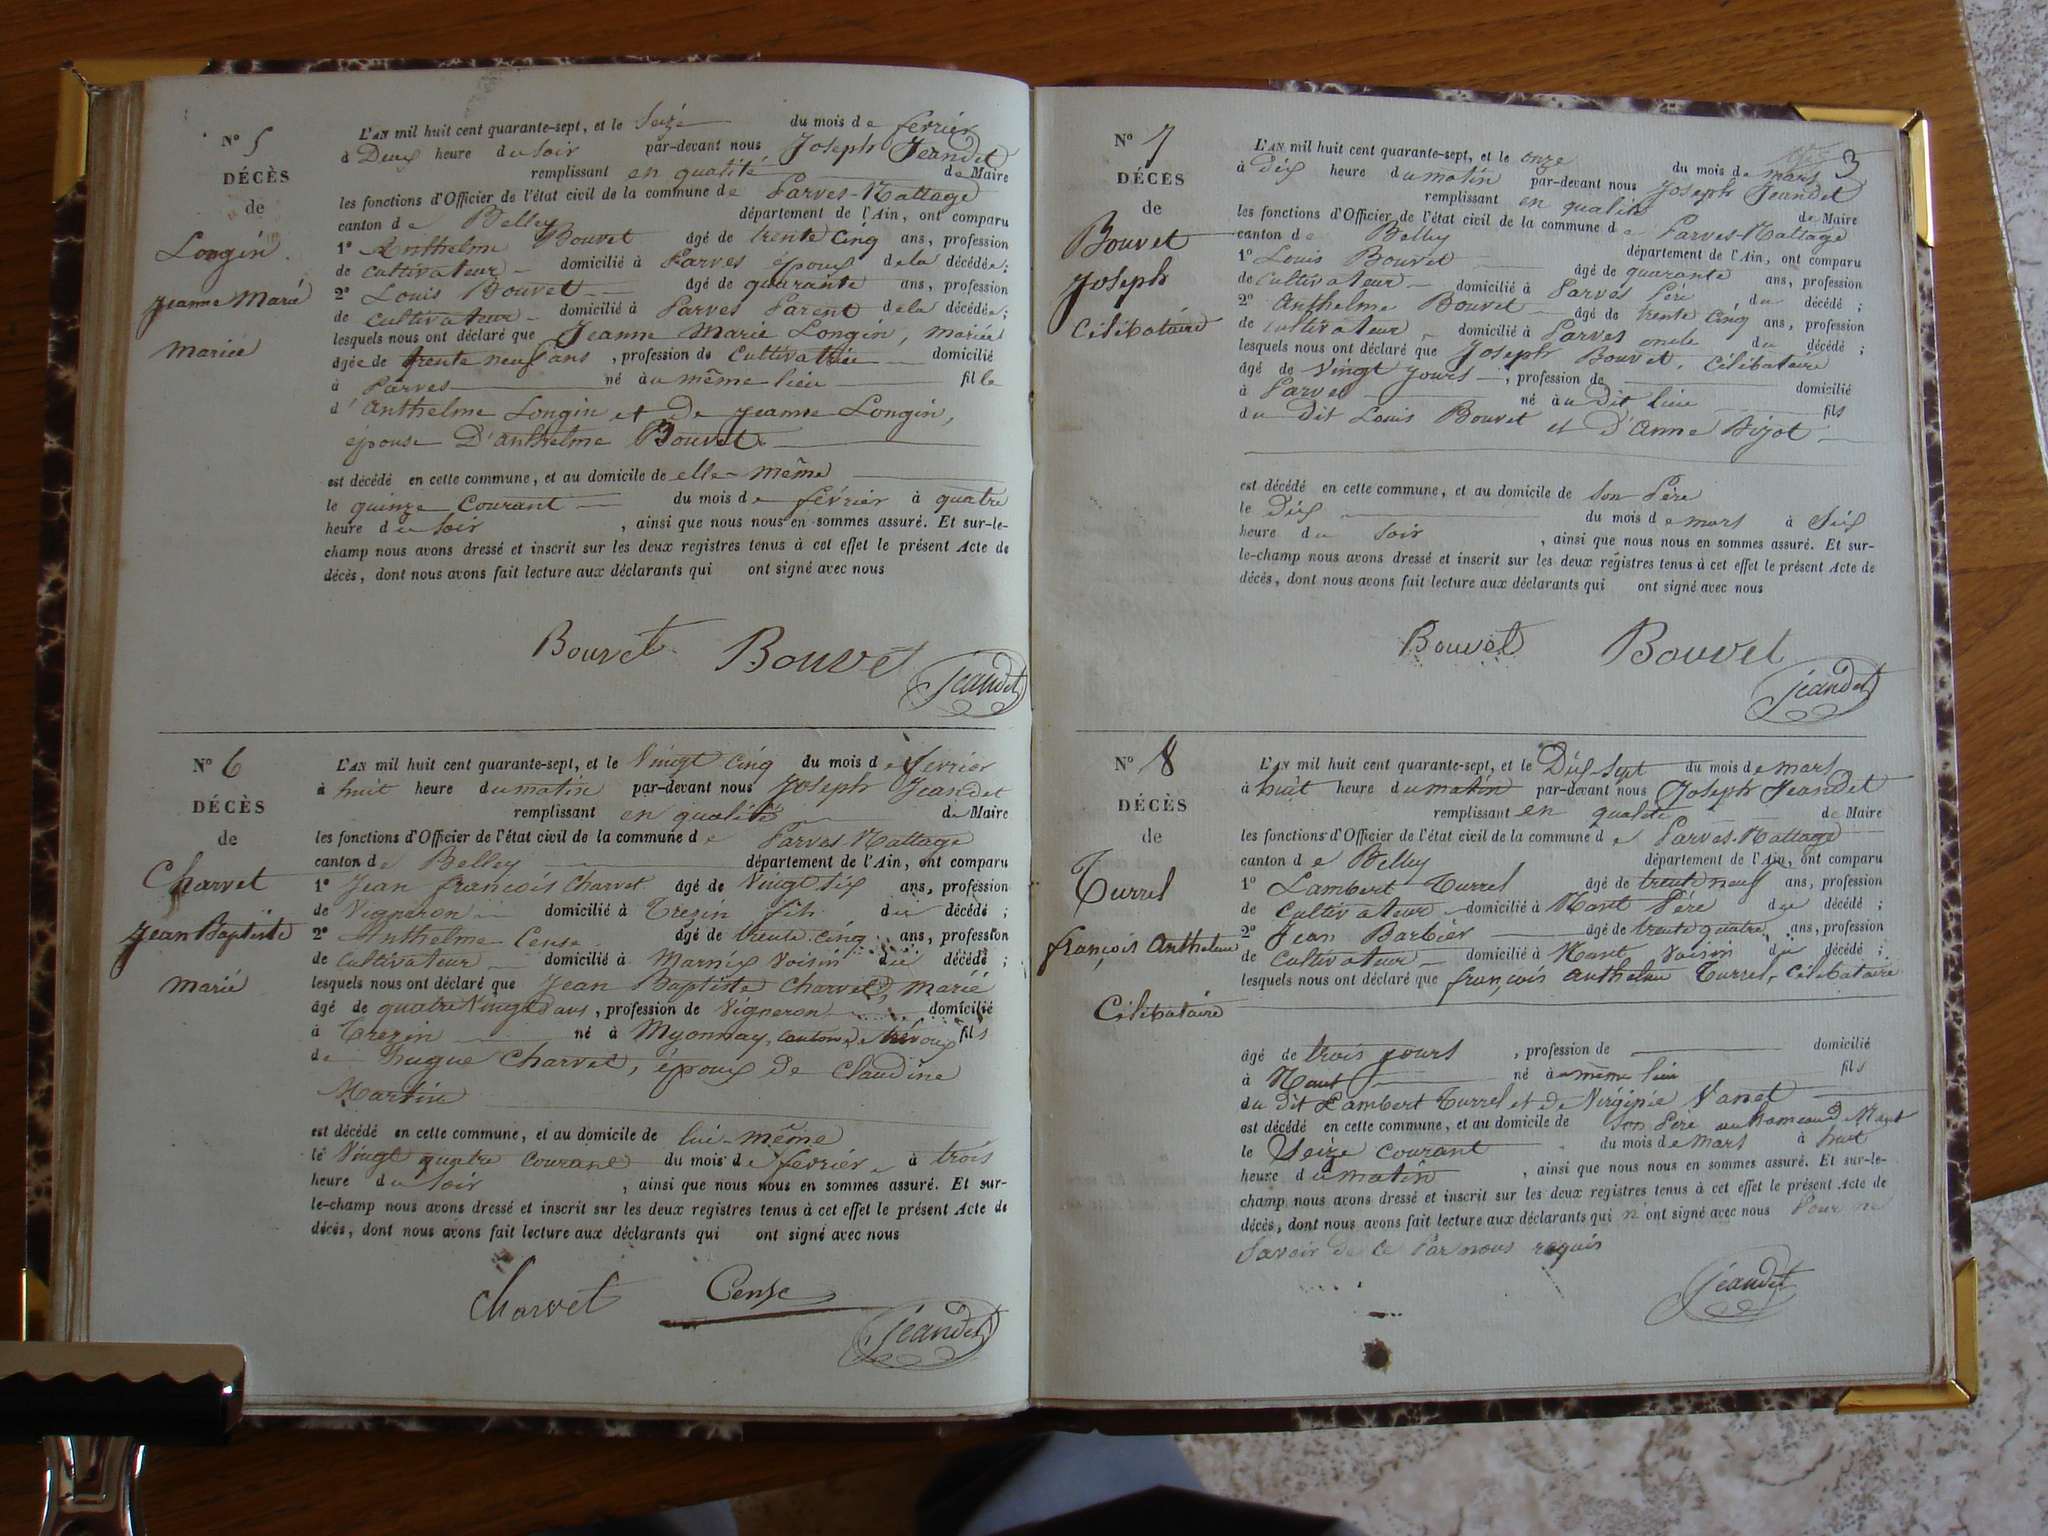 N° 5
DÉCÈS
de
Longin
Jeanne Marie
mariée
L'AN mil huit cent quarante-sept, et le Seize du mois de fevrier
à Deux heure du soir par-devant nous Joseph Jeandet
remplissant en qualité de Maire
les fonctions d'Officier de l'état civil de la commune de Parves-Nattage
canton de Belley département de l'Ain, ont comparu
1° Anthelme Bouvet âgé de trente cinq ans, profession
de cultivateur domicilié à Parves époux de la décédée;
2° Louis Bouvet âgé de quarante ans, profession
de cultivateur domicilié à Parves Parent de la décédée;
lesquels nous ont déclaré que Jeanne Marie Longin, mariée
âgée de trente neuf ans, profession de Cultivatrice domicilié
à Parves né à u même lieu fille
d'Anthelme Longin et de Jeanne Longin,
épouse D'anthelme Bouvet
est décédé en cette commune, et au domicile de elle-même
le quinze Courant du mois de février à quatre
heure du soir, ainsi que nous nous en sommes assuré. Et sur-le-
champ nous avons dressé et inscrit sur les deux registres tenus à cet effet le présent Acte de
décès, dont nous avons fait lecture aux déclarants qui ont signé avec nous
Bouvet Bouvet
Jeandet
N° 6
DÉCÈS
de
Charvet
Jean Baptiste
marié
L'AN mil huit cent quarante-sept, et le Vingt cinq du mois de fevrier
à huit heure du matin par-devant nous Joseph Jeandet
remplissant en qualité de Maire
les fonctions d'Officier de l'état civil de la commune de Parves-Nattage
canton de Belley département de l'Ain, ont comparu
1° Jean françois Charvet âgé de Vingt six ans, profession
de Vigneron domicilié à Trezin fils du décédé;
2° Anthelme Cense âgé de trente-cinq ans, profession
de Cultivateur domicilié à Marnix Voisin du décédé;
lesquels nous ont déclaré que Jean Baptiste Charvet, marié
âgé de quatre Vingts ans, profession de Vigneron domicilié
à Trezin né à Myonnay, canton de trévoux fils
de hugue Charvet, époux de Claudine
Martin
est décédé en cette commune, et au domicile de lui-même
le Vingt quatre courant du mois de fevrier à trois
heure du soir, ainsi que nous nous en sommes assuré. Et sur-
le-champ nous avons dressé et inscrit sur les deux registres tenus à cet effet le présent Acte de
décès, dont nous avons fait lecture aux déclarants qui ont signé avec nous
Charvet Cense
Jeandet
3
N° 7
DÉCÈS
de
Bouvet
Joseph
Célibataire
L'AN mil huit cent quarante-sept, et le onze du mois de mars
à Dix heure du matin par-devant nous Joseph Jeandet
remplissant en qualité de Maire
les fonctions d'Officier de l'état civil de la commune de Parves-Nattage
canton de Belley département de l'Ain, ont comparu
1° Louis Bouvet âgé de quarante ans, profession
de cultivateur domicilié à Parves Père du décédé;
2° Anthelme Bouvet âgé de trente cinq ans, profession
de Cultivateur domicilié à Parves oncle du décédé;
lesquels nous ont déclaré que Joseph Bouvet, Célibataire
âgé de Vingt jours, profession de domicilié
à Parves né à u dit lieu fils
du dit Louis Bouvet et D'anne
est décédé en cette commune, et au domicile de son Père
le Dix du mois de mars à Six
heure du soir, ainsi que nous nous en sommes assuré. Et sur-
le-champ nous avons dressé et inscrit sur les deux registres tenus à cet effet le présent Acte de
décès, dont nous avons fait lecture aux déclarants qui ont signé avec nous
Bouvet Bouvet
Jeandet
N° 8
DÉCÈS
de
Turrel
françois Anthelme
Célibataire
L'AN mil huit cent quarante-sept, et le Dix-Sept du mois de mars
à huit heure du matin par-devant nous Joseph Jeandet
remplissant en qualité de Maire
les fonctions d'Officier de l'état civil de la commune de Parves-Nattage
canton de Belley département de l'Ain, ont comparu
1° Lambert Turrel âgé de trente neuf ans, profession
de Cultivateur domicilié à Nant Père du décédé;
2° Jean Barbier âgé de trente quatre ans, profession
de Cultivateur domicilié à Nant Voisin du décédé;
lesquels nous ont déclaré que françois anthelme Turrel, Célibataire
âgé de trois jours, profession de domicilié
à Nant né à u même lieu fils
du dit Lambert Turrel et de Virginie
est décédé en cette commune, et au domicile de son Père au hameau de Nant
le Seize courant du mois de mars à huit
heure du matin, ainsi que nous nous en sommes assuré. Et sur-le-
champ nous avons dressé et inscrit sur les deux registres tenus à cet effet le présent Acte de
décès, dont nous avons fait lecture aux déclarants qui n'ont signé avec nous Pour ne
Savoir de ce Par nous requis
Jeandet